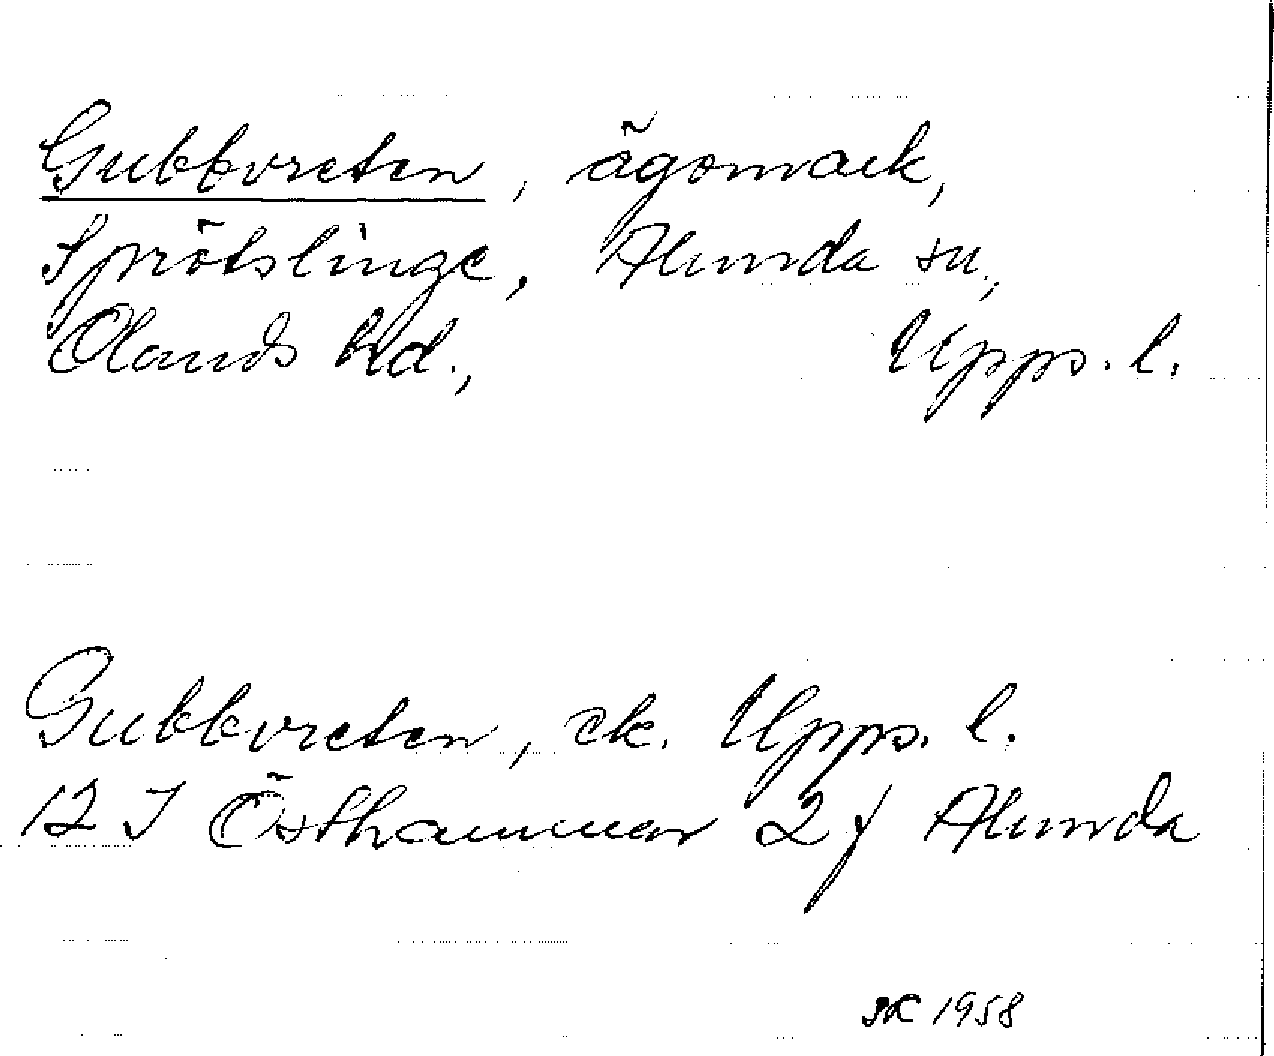 Gubbvreten, ägomark,
Sprötslinge, Alunda sn.,
Olands hd., Upps. l.
Gubbvreten, ek. Upps. l.
12 I Östhammar 2 f Alunda
1958